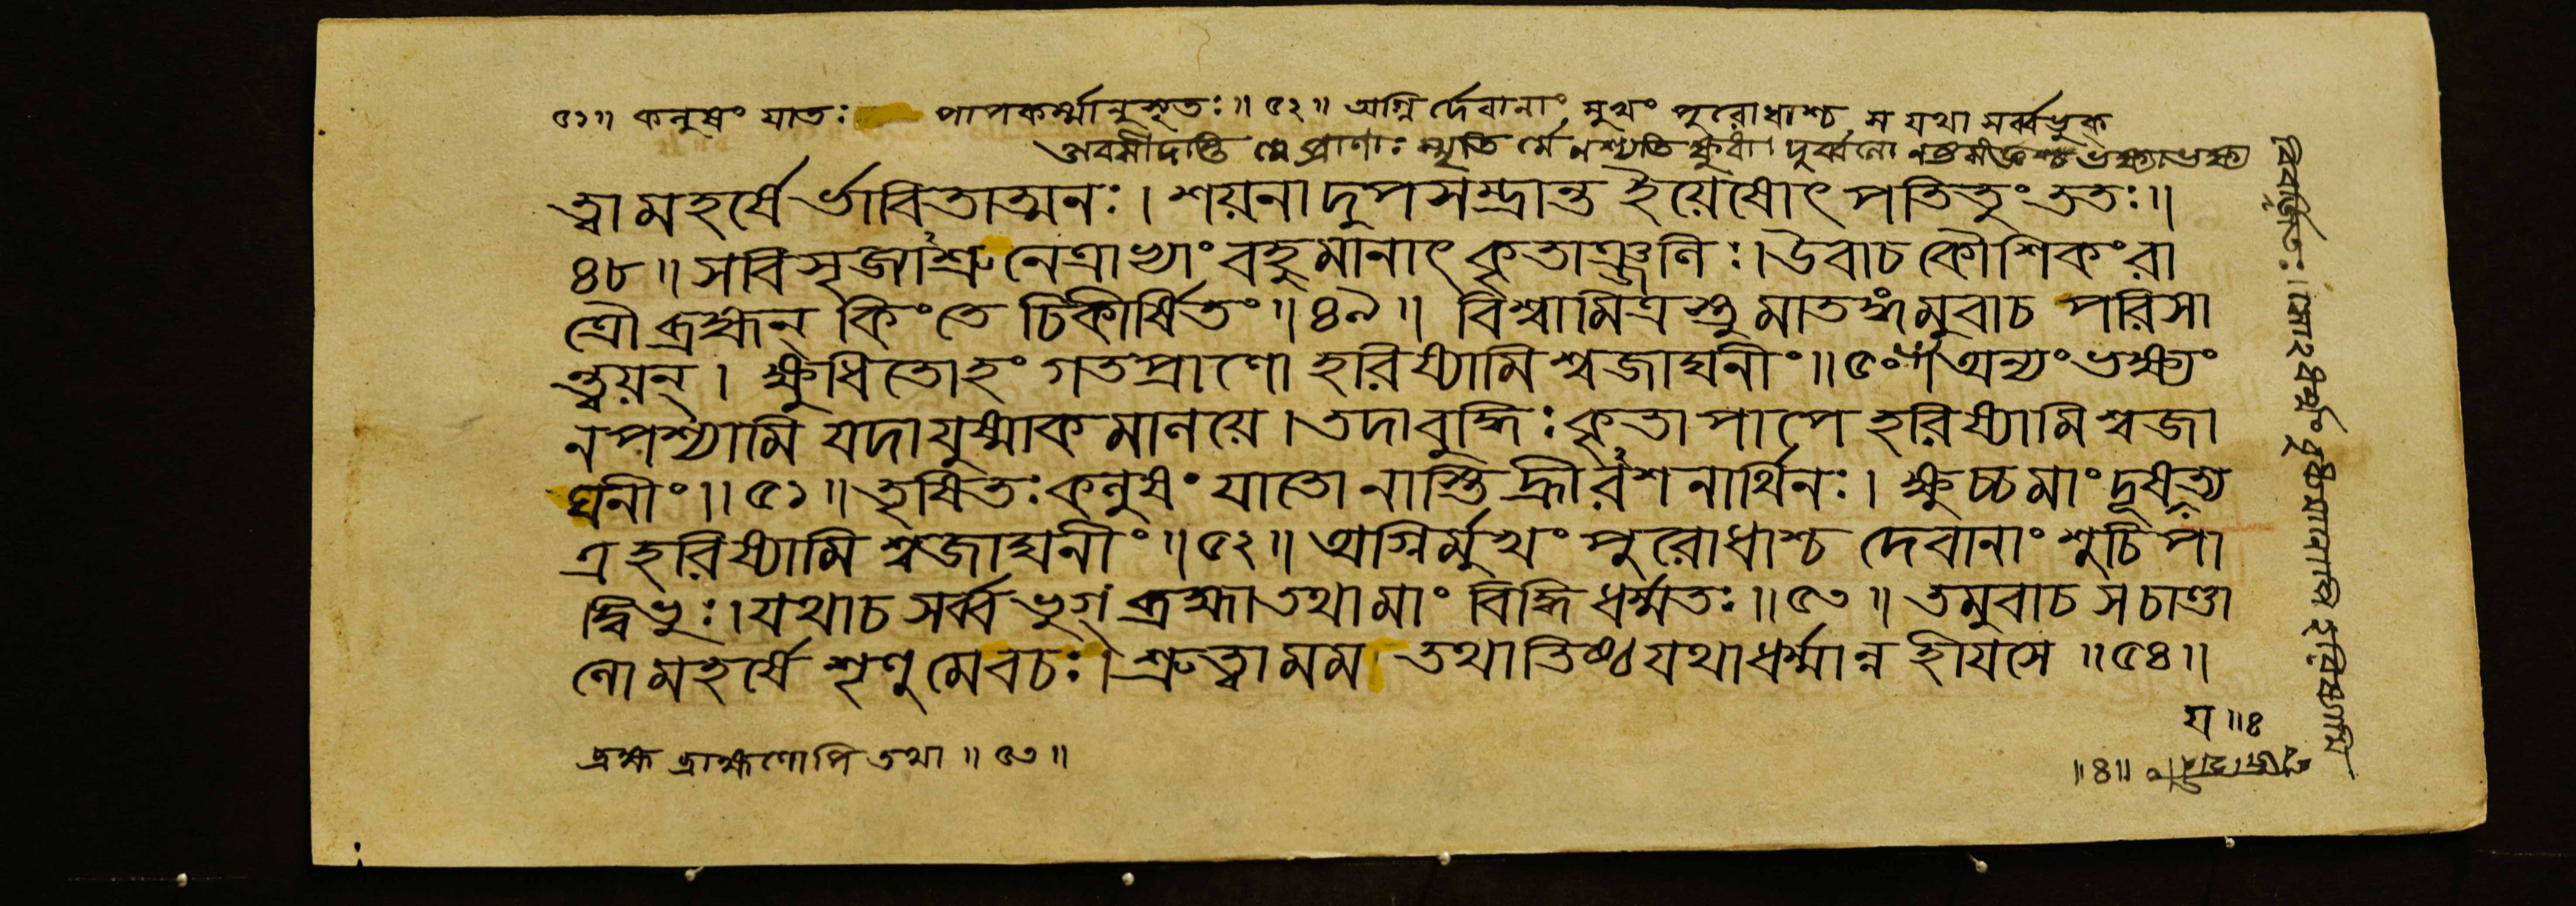 ৫১॥ কলুষং যাতঃ পাপকর্ম্মানুসৃতঃ॥ ৫২॥ অগ্নির্দেবানাং মুখং পুরোধাশ্চ স যথা সর্ব্বভুক্
অবসীদন্তি মে প্রাণাঃ স্মৃতি র্মে নশ্যতি ক্ষুধা। দুর্ব্বলো নষ্টসংজ্ঞশ্চ ভক্ষ্যাভক্ষ্য
ত্বা মহর্ষে র্ভাবিতাত্মনঃ। শয়নাদুপসম্ভ্রান্ত ইয়েষোৎপতিতুং ততঃ॥
৪৮॥ স বিসৃজ্যাশ্রু নেত্রাভ্যাং বহুমানাৎ কৃতাঞ্জলিঃ। উবাচ কৌশিকং রা
ত্রৌ ব্রহ্মন্ কিং তে চিকীর্ষিতং॥ ৪৯॥ বিশ্বামিত্রস্তু মাতঙ্গমুবাচ পরিসা
ন্ত্বয়ন্। ক্ষুধিতোহং গতপ্রাণো হরিষ্যামি শ্বজাঘনীং॥ ৫০॥ অন্যং ভক্ষ্যং
ন পশ্যামি যদা যুষ্মাকমালয়ে। তদা বুদ্ধিঃ কৃতা পাপে হরিষ্যামি শ্বজা
ঘনীং॥ ৫১॥ তৃষিতঃ কলুষং যাতো নাস্তি হ্রীরশনার্থিনঃ। ক্ষুচ্চ মাং দূষয়ত্য
ত্র হরিষ্যামি শ্বজাঘনীং॥ ৫২॥ অগ্নির্মুখং পুরোধাশ্চ দেবানাং শুচিপা
দ্বিভুঃ। যথা চ সর্ব্বভুগ্ ব্রহ্মা তথা মাং বিদ্ধি ধর্ম্মতঃ॥ ৫৩॥ তমুবাচ স চাণ্ডা
লো মহর্ষে শৃণু মে বচঃ। শ্রুত্বা মম তথাতিষ্ঠ যথা ধর্ম্মান্ন হীয়সে॥ ৫৪॥
ব্রহ্ম ব্রাহ্মণোপি তথা॥ ৫৩॥
য॥৪
বিবর্জিতঃ। সোহং ধর্মং বুধ্যমানোপি হরিষ্যামি
শ্বজাঘনীং॥৪॥